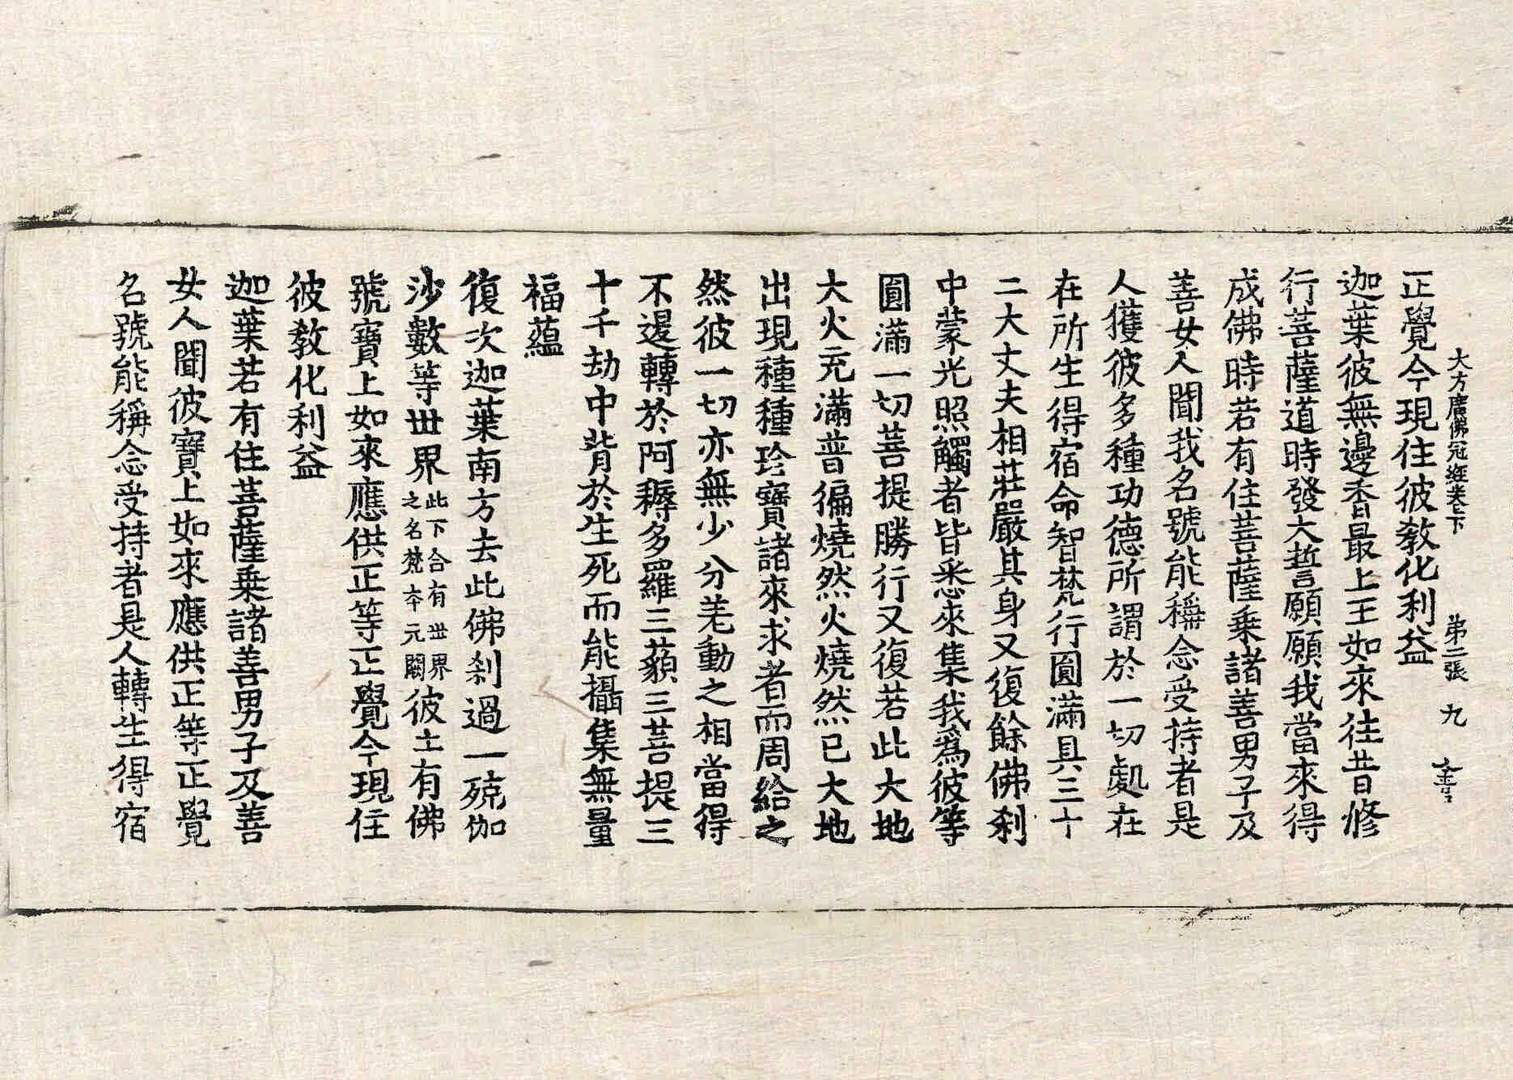 大方廣佛冠經卷下　第二張　九　善
正覺今現住彼教化利益
迦葉彼無邊香最上王如來往昔修
行菩薩道時發大誓願願我當來得
成佛時若有住菩薩乘諸善男子及
善女人聞我名號能稱念受持者是
人獲彼多種功德所謂於一切處在
在所生得宿命智梵行圓滿具三十
二大丈夫相莊嚴其身又復餘佛剎
中蒙光照觸者皆悉來集我為彼等
圓滿一切菩提勝行又復若此大地
大火充滿普徧燒然火燒然已大地
出現種種珍寶諸來求者而周給之
然彼一切亦無少分差動之相當得
不退轉於阿耨多羅三藐三菩提三
十千劫中背於生死而能攝集無量
福蘊
復次迦葉南方去此佛剎過一殑伽
沙數等世界此下合有世界之名梵本元闕彼土有佛
號寶上如來應供正等正覺今現住
彼教化利益
迦葉若有住菩薩乘諸善男子及善
女人聞彼寶上如來應供正等正覺
名號能稱念受持者是人轉生得宿